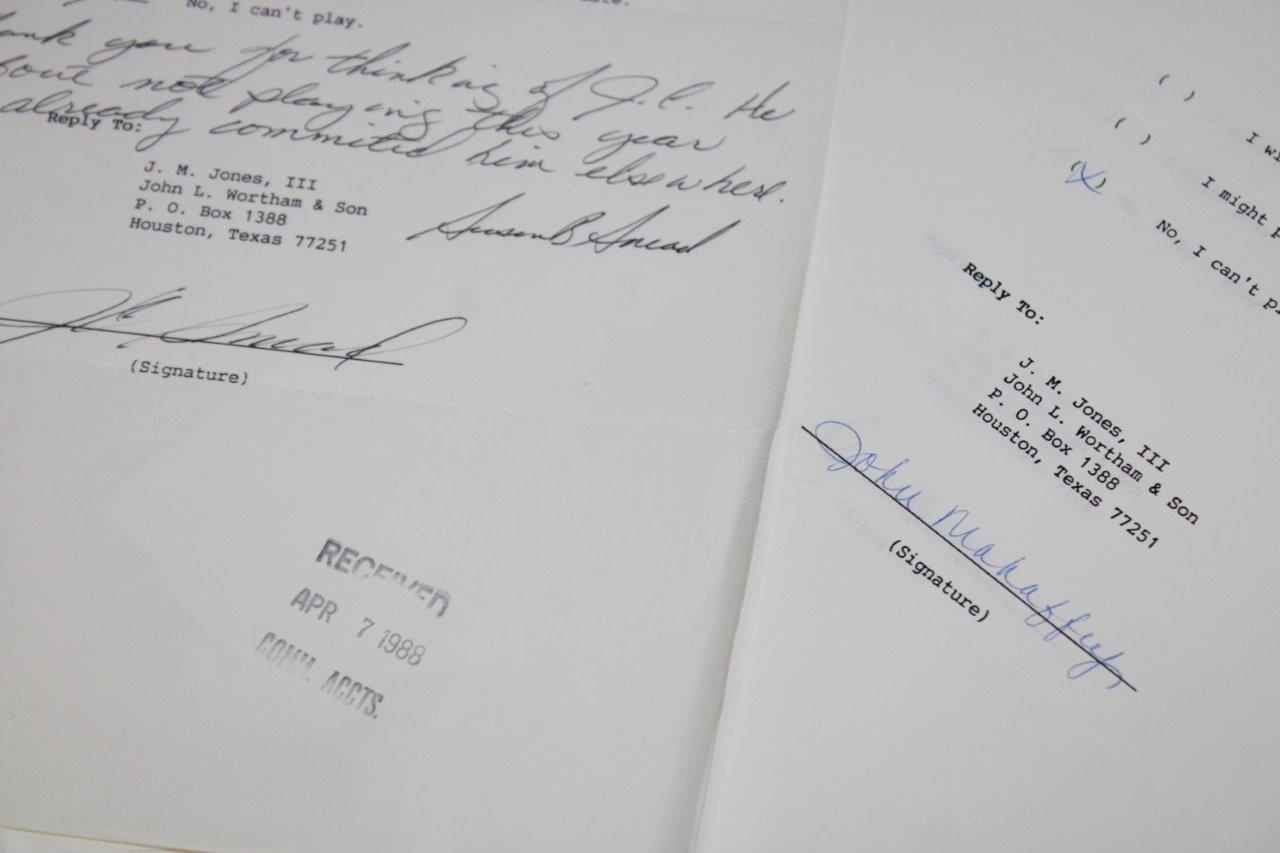 No, I can't play.
you for thinking of J.C. He
not playing this year
already committed him elsewhere.
Reply To:
J. M. Jones, III
John L. Wortham & Son
P. O. Box 1388
Houston, Texas 77251
Susan B Snead
J.C. Snead
(Signature)
RECEIVED
APR 7 1988
COMM. ACCTS.
( )
( ) I
(X) I might
No, I can't
Reply To:
J. M. Jones, III
John L. Wortham & Son
P. O. Box 1388
Houston, Texas 77251
John Mahaffey
(Signature)